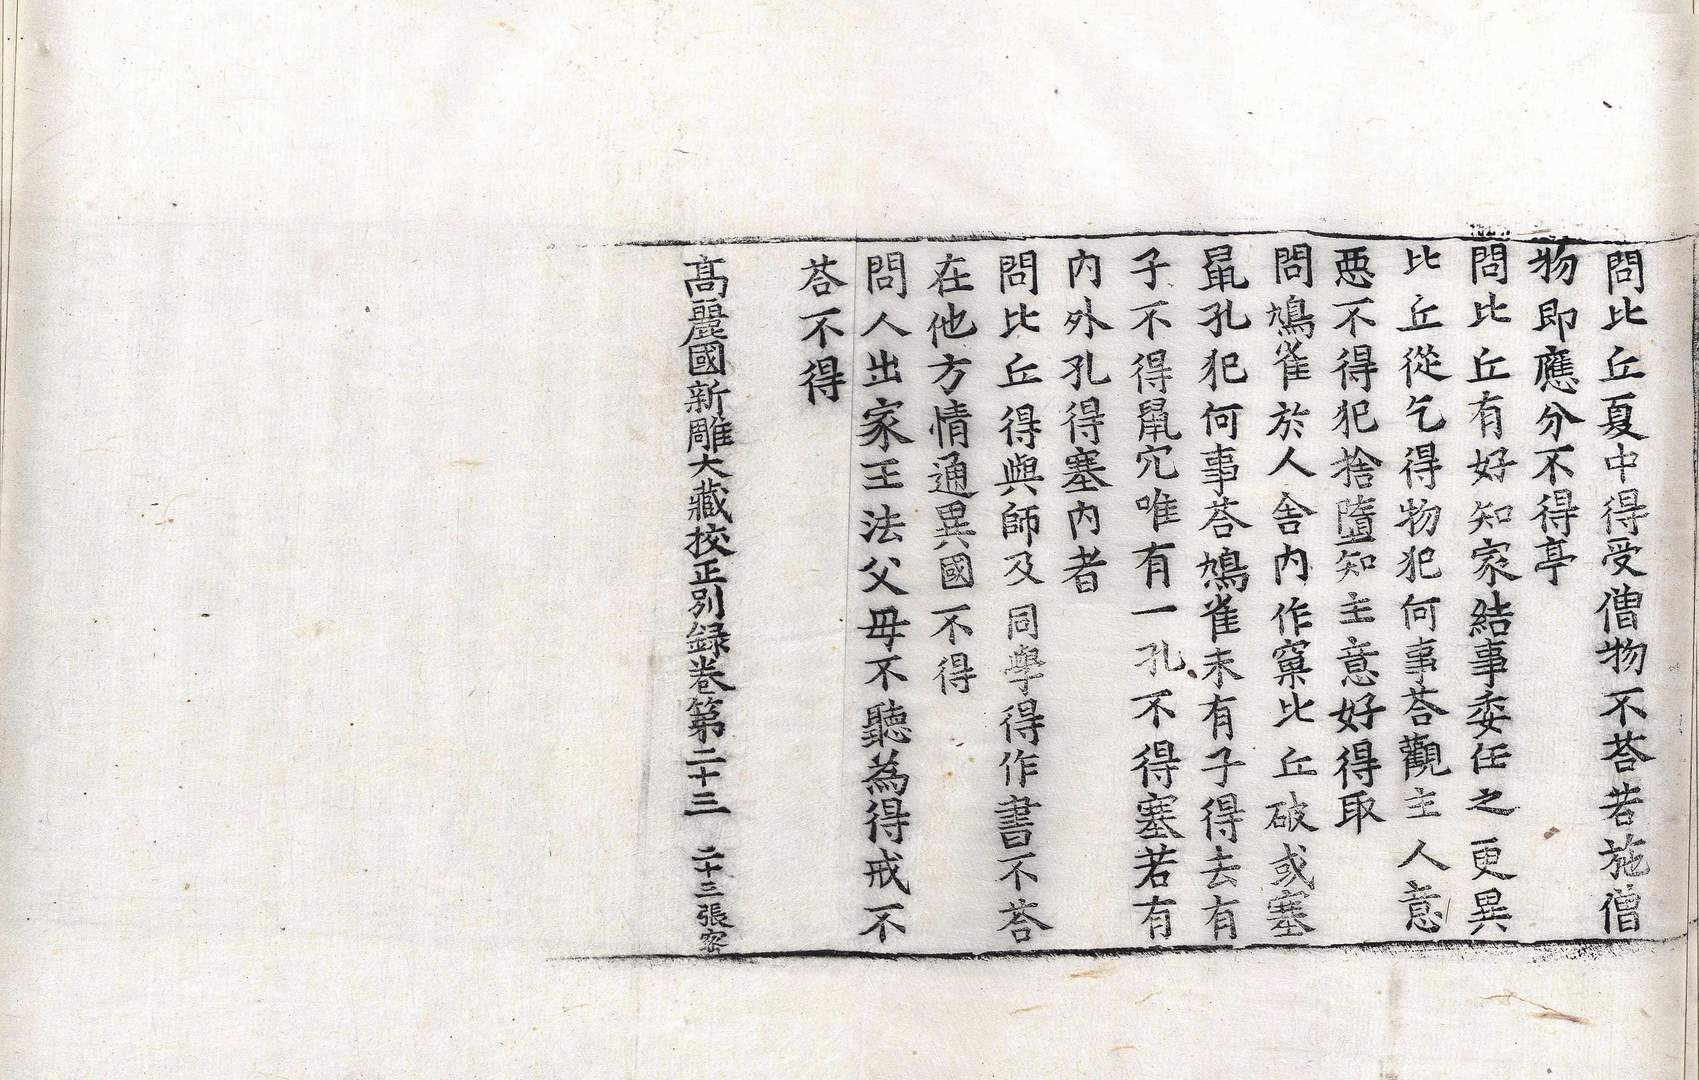 問比丘夏中得受僧物不荅若施僧
物即應分不得亭
問比丘有好知家結事委任之更異
比丘從乞得物犯何事荅觀主人意
惡不得犯捨墮知主意好得取
問鳩雀於人舍内作窠比丘破或塞
鼠孔犯何事荅鳩雀未有子得去有
子不得鼠穴唯有一孔不得塞若有
内外孔得塞内者
問比丘得與師及同學得作書不荅
在他方情通異國不得
問人出家王法父母不聽為得戒不
荅不得
高麗國新雕大藏校正别録卷第二十三　二十三張容